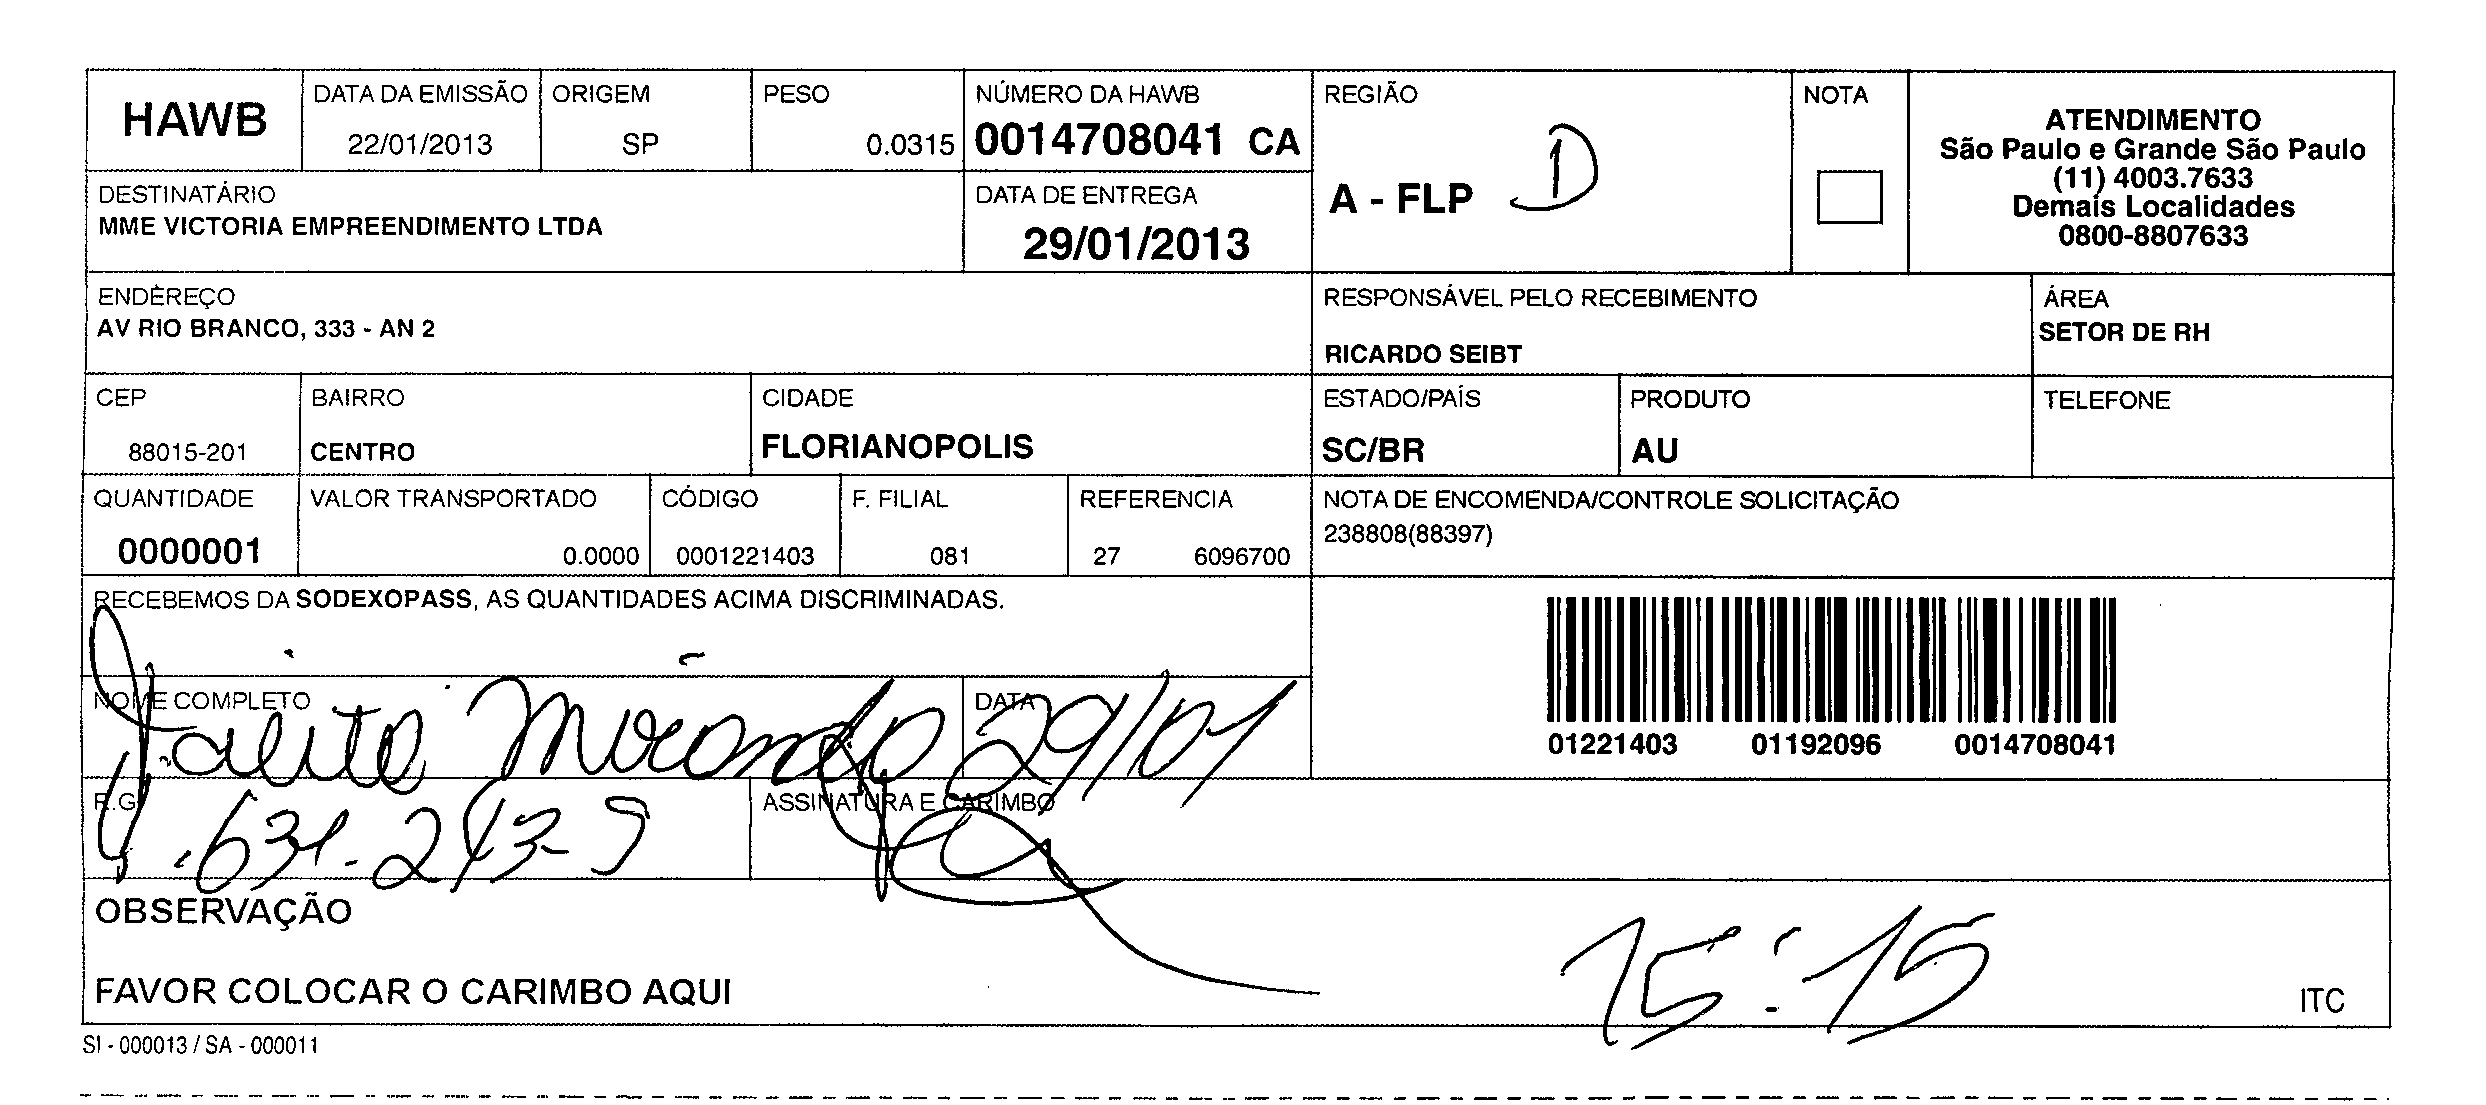 HAWB
DATA DA EMISSÃO
22/01/2013
ORIGEM
SP
PESO
0.0315
NÚMERO DA HAWB
0014708041 CA
REGIÃO
A - FLP D
NOTA
ATENDIMENTO
São Paulo e Grande São Paulo
(11) 4003.7633
Demais Localidades
0800-8807633
DESTINATÁRIO
MME VICTORIA EMPREENDIMENTO LTDA
DATA DE ENTREGA
29/01/2013
ENDEREÇO
AV RIO BRANCO, 333 - AN 2
RESPONSÁVEL PELO RECEBIMENTO
RICARDO SEIBT
ÁREA
SETOR DE RH
CEP
88015-201
BAIRRO
CENTRO
CIDADE
FLORIANOPOLIS
ESTADO/PAÍS
SC/BR
PRODUTO
AU
TELEFONE
QUANTIDADE
0000001
VALOR TRANSPORTADO
0.0000
CÓDIGO
0001221403
F. FILIAL
081
REFERENCIA
27 6096700
NOTA DE ENCOMENDA/CONTROLE SOLICITAÇÃO
238808(88397)
RECEBEMOS DA SODEXOPASS, AS QUANTIDADES ACIMA DISCRIMINADAS.
01221403 01192096 0014708041
NOME COMPLETO
DATA
29/01
R.G
ASSINATURA E CARIMBO
OBSERVAÇÃO
15:15
FAVOR COLOCAR O CARIMBO AQUI
ITC
SI - 000013 / SA - 000011